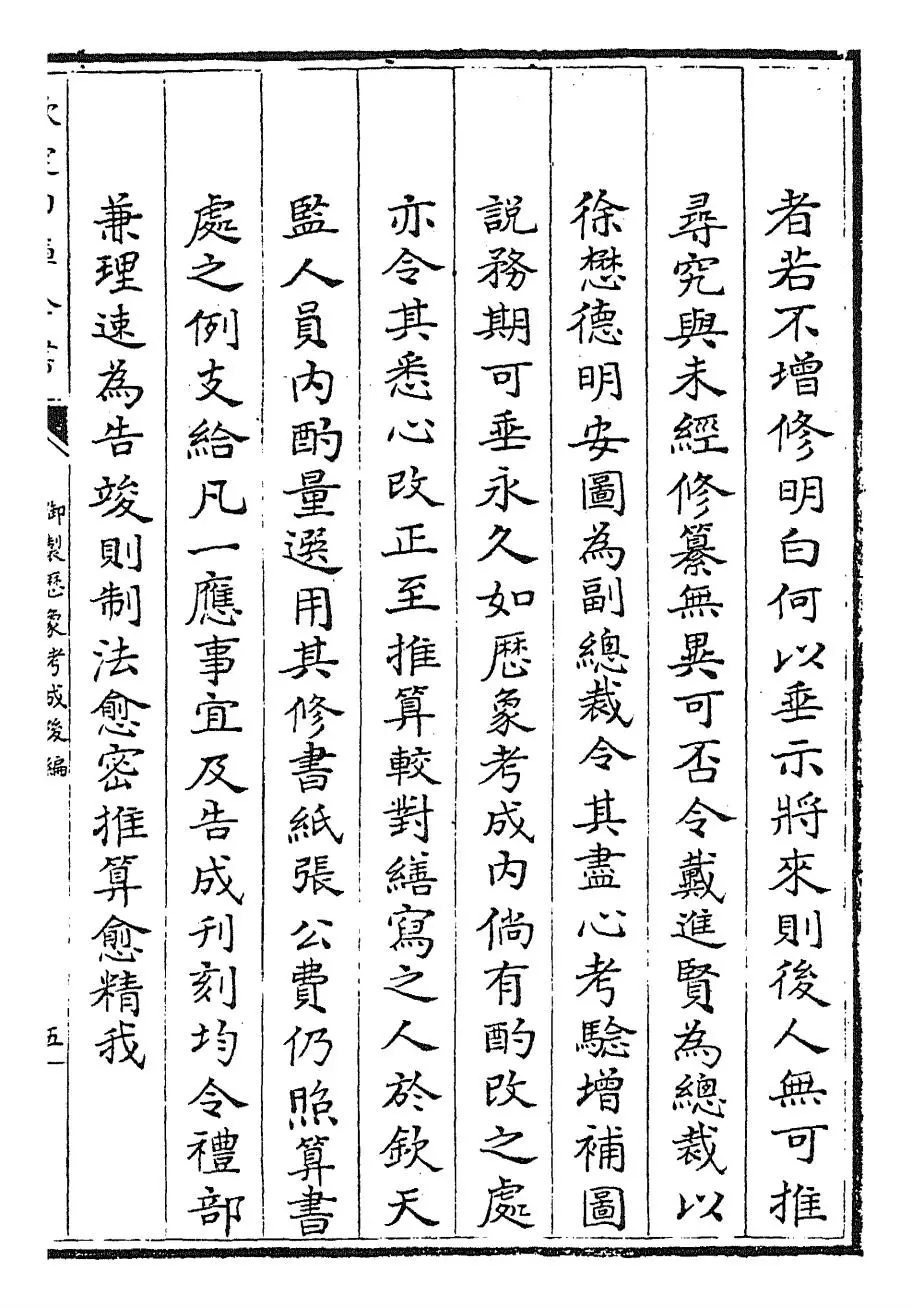 者若不增修明白何以垂示將來則後人無可推
尋究與未經修纂無異可否令戴進賢為總裁以
徐懋德明安圖為副總裁令其盡心考驗增補圖
說務期可垂永久如歴象考成内倘有酌改之處
亦令其悉心改正至推算較對繕寫之人於欽天
監人員内酌量選用其修書紙張公費仍照算書
處之例支給凡一應事宜及告成刊刻均令禮部
兼理速為告竣則制法愈密推算愈精我
御製歴象考成後編